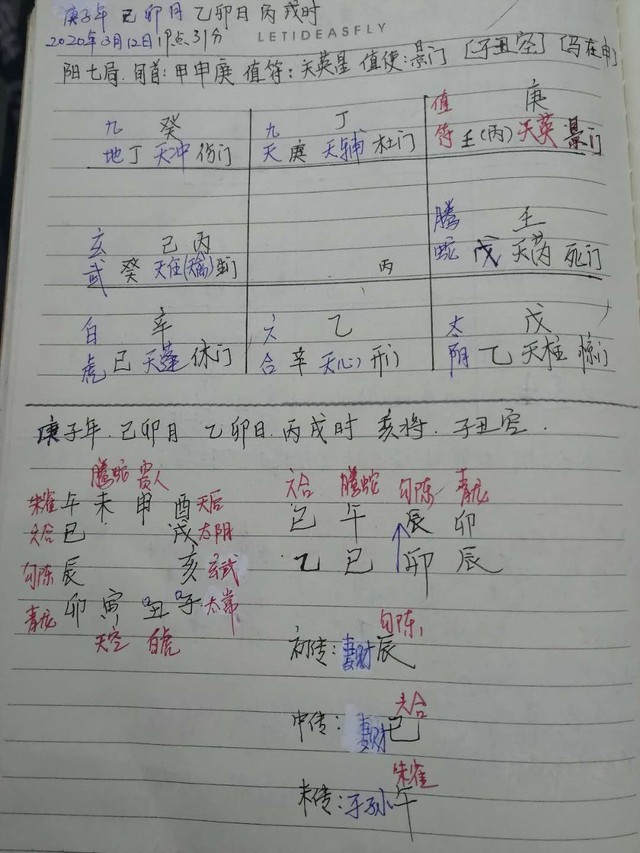 庚子年 己卯月 乙卯日 丙戌时
2020年3月12日19点31分 LETIDEASFLY
阳七局. 旬首:甲申庚 值符:天英星 值使:景门 [子丑空] [马在申]
九 癸
地 丁 天冲 伤门
九 丁
天 庚 天辅 杜门
值 庚
符 壬(丙) 天英 景门
玄 己 丙
武 癸 天任(天禽) 生门
丙
腾 壬
蛇 戊 天芮 死门
白 辛
虎 己 天蓬 休门
六 乙
合 辛 天心 开门
太 戊
阴 乙 天柱 惊门
庚子年. 己卯月 乙卯日. 丙戌时 亥将. 子丑空.
腾蛇 贵人
朱雀 午 未 申 酉 天后
六合 巳 戌 太阴
勾陈 辰 亥 玄武
青龙 卯 寅 丑 子 太常
天空 白虎
六合 腾蛇 勾陈 青龙
巳 午 辰 卯
乙 巳 卯 辰
勾陈
初传: 妻财 辰
六合
中传: 妻财 巳
朱雀
末传: 子孙 午